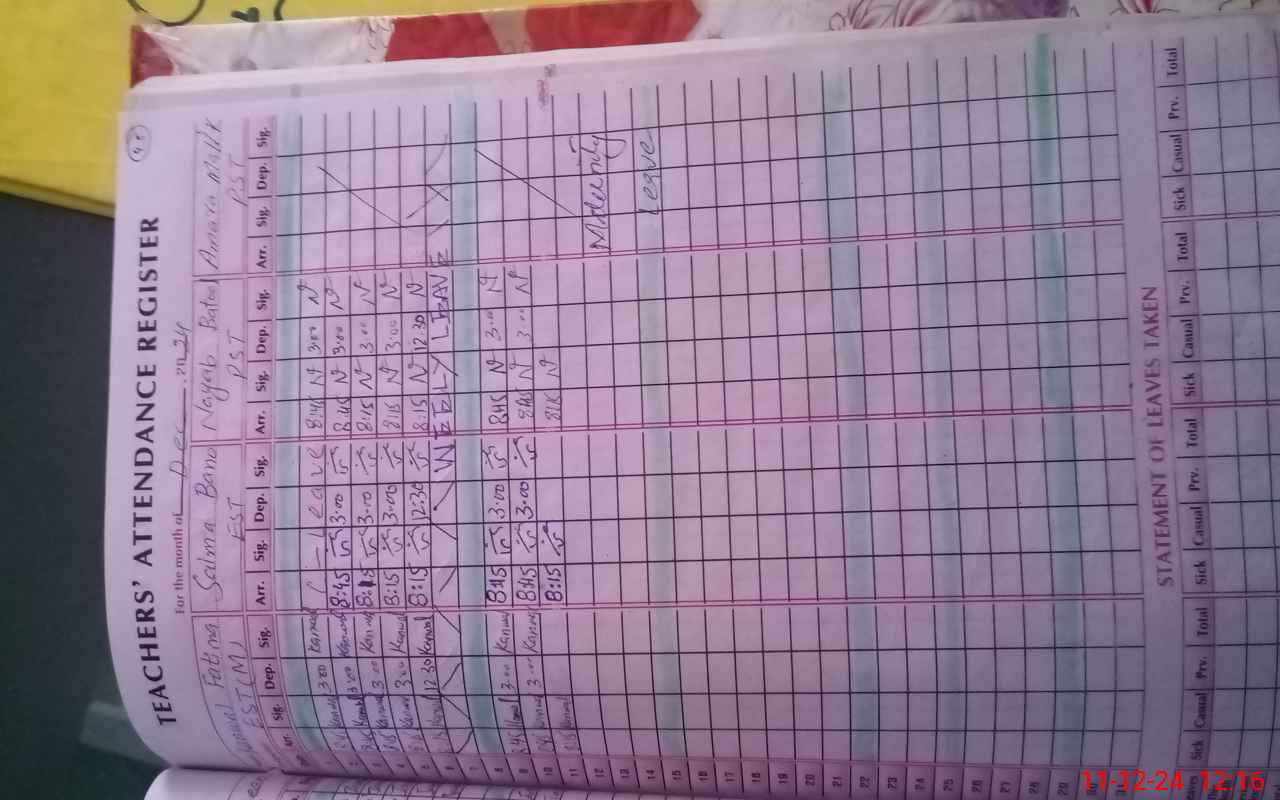 48
TEACHERS' ATTENDANCE REGISTER
For the month of Dec 2024
Fatima Salma Bano Nayab Batool Amara Malik
EST (M) EST PST PST
Arr. Sig. Dep. Sig. Arr. Sig. Dep. Sig. Arr. Sig. Dep. Sig. Arr. Sig. Dep. Sig.
1
2 Kanwal 3:00 Kanwal Leave 8:45 N 3:00 N
3 Kanwal 3:00 Kanwal 8:45 3:00 8:45 N 3:00 N
4 Kanwal 3:00 Kanwal 8:15 3:00 8:15 N 3:00 N
5 8:15 Kanwal 3:00 Kanwal 8:15 3:00 8:15 N 3:00 N
6 Kanwal 12:30 Kanwal 8:15 12:30 8:15 N 12:30 N
7 WEEKLY LEAVE
8
9 8:45 Kanwal 3:00 Kanwal 8:45 3:00 8:45 N 3:00 N
10 Kanwal 3:00 Kanwal 8:45 3:00 8:45 N 3:00 N
11 8:15 Kanwal 8:15 8:15 N
12 Maternity
13
14 Leave
15
16
17
18
19
20
21
22
23
24
25
26
27
28
29
30
31
STATEMENT OF LEAVES TAKEN
Sick Casual Prv. Total Sick Casual Prv. Total Sick Casual Prv. Total Sick Casual Prv. Total
11-12-24 12:16